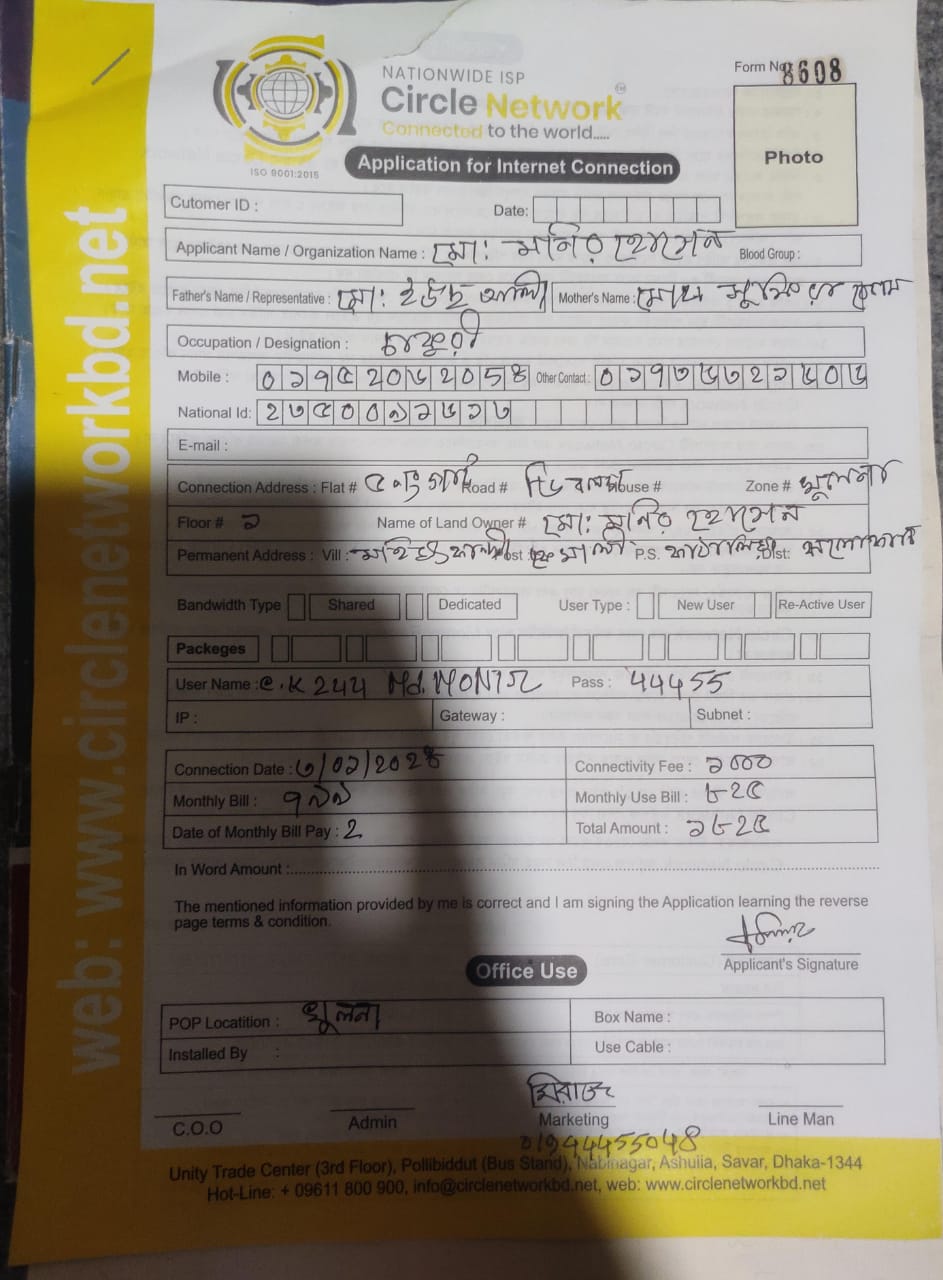 NATIONWIDE ISP
Circle Network
Connected to the world.....
ISO 9001:2015
Form No: 8608
Photo
Application for Internet Connection
Cutomer ID :
Date:
Applicant Name / Organization Name : মো: মনির হোসেন Blood Group :
Father's Name / Representative : মো: ইউছুব আলী Mother's Name :
Occupation / Designation : চাকুরী
Mobile : Other Contact :
National Id:
E-mail :
Connection Address : Flat # Road # House # Zone # খুলনা
Floor # ১ Name of Land Owner # মো: মনির হোসেন
Permanent Address : Vill : Post P.S. Dist:
Bandwidth Type Shared Dedicated User Type : New User Re-Active User
Packeges
User Name : C.K 244 Md. MONIR Pass : 44455
IP : Gateway : Subnet :
Connection Date : Connectivity Fee : ১০০০
Monthly Bill : ৭৯৯ Monthly Use Bill : ৮২৫
Date of Monthly Bill Pay : 2 Total Amount : ১৮২৫
In Word Amount :
The mentioned information provided by me is correct and I am signing the Application learning the reverse
page terms & condition.
Applicant's Signature
Office Use
POP Locatition : খুলনা Box Name :
Installed By : Use Cable :
মিরাজ
C.O.O Admin Marketing Line Man
01944455048
Unity Trade Center (3rd Floor), Pollibiddut (Bus Stand), Nabinagar, Ashulia, Savar, Dhaka-1344
Hot-Line: + 09611 800 900, info@circlenetworkbd.net, web: www.circlenetworkbd.net
web: www.circlenetworkbd.net